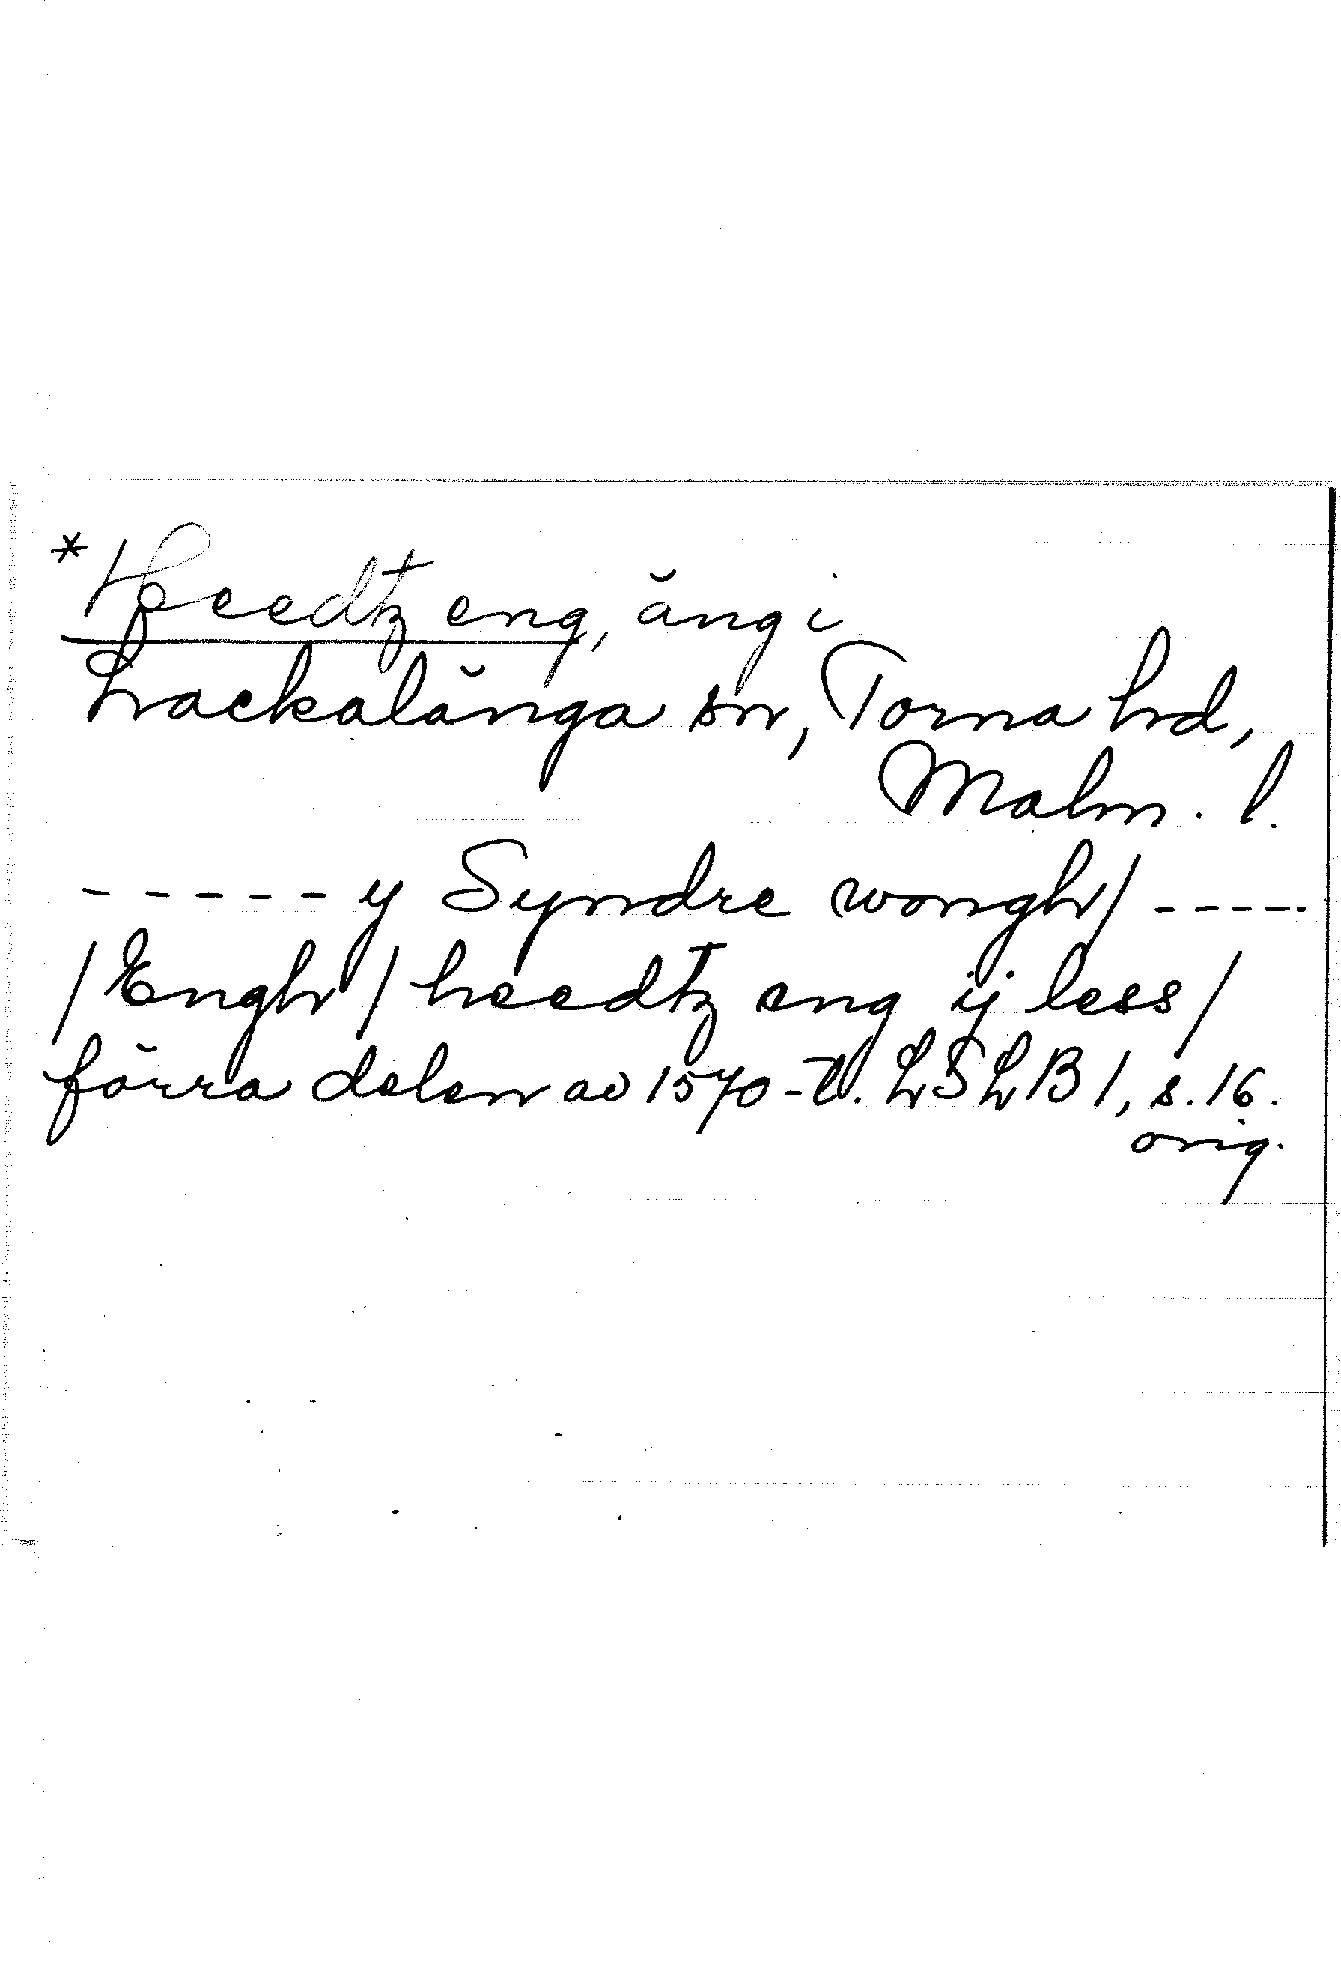 *Heedtz eng, äng i
Lackalänga sn, Torna hd,
Malm. l.
- - - - - y Syndre wongh/ - - - - -
/Engh/ heedtz eng ij less/
förra delen av 1570-t. LSLB 1, s. 16.
orig.